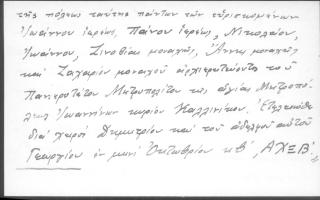 τῆς πόλεως ταύτης πάντων τῶν εὑρισκομένων
Ἰωάννου ἱερέως, Πάνου ἱερέως, Νικολάου,
Ἰωάννου, Ζηνοβίου μοναχῆς, Ἄννης μοναχῆς
καὶ Ζαχαρίου μοναχοῦ ἀρχιερατεύοντος τοῦ
Πανιερωτάτου Μητροπολίτου τῆς ἁγίας Μητροπό-
λεως Ἰωαννίνων κυρίου Καλλινίκου. Ἐτελειώθη
διὰ χειρὸς Δημητρίου καὶ τοῦ ἀδελφοῦ αὐτοῦ
Γεωργίου ἐν μηνὶ Ὀκτωβρίου κβ΄, ΑΧΞΒ΄.